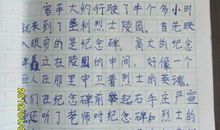 客车大约行驶了半个多小时
就来到了烈士陵园。首先映
入眼帘的是纪念碑。高大的纪念
碑矗立在陵园的中间，好像一个
巨人在那里守卫着烈士的英魂。
我们在纪念碑前举起右手庄严宣
听了老师对纪念碑和